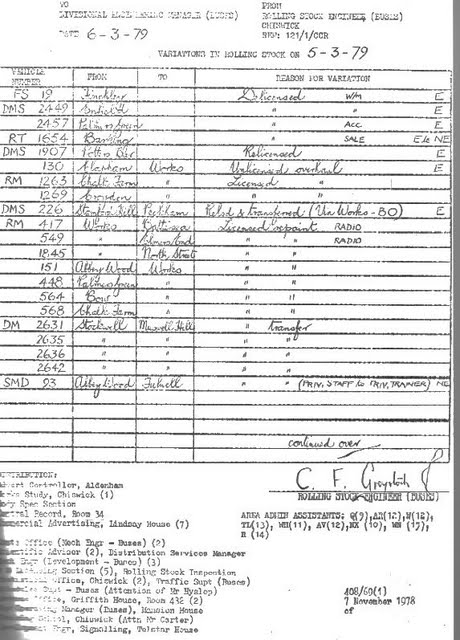 TO
FROM
DIVISIONAL ENGINEERING MANAGER (BUSES)
ROLLING STOCK ENGINEER (BUSES)
CHISWICK
DATE 6-3-79
REF: 121/1/CCR
VARIATIONS IN ROLLING STOCK ON 5-3-79
VEHICLE NUMBER FROM TO REASON FOR VARIATION
FS 19 Finchley Delicensed W/M E
DMS 2449 Enfield " " E
2457 Palmers Green " ACC. E
RT 1654 Barking " SALE E to NE
DMS 1907 Potters Bar Relicensed E
130 Clapham Works Unlicensed overhaul E
RM 1263 Chalk Farm " Licensed "
1269 Croydon " " "
DMS 226 Stamford Hill Peckham Relsd & transferred (Via Works - BO) E
RM 417 Works Battersea Licensed repaint RADIO
549 " Elmers End " " RADIO
1845 " North Street " "
151 Abbey Wood Works " "
448 Palmers Green " " "
564 Bow " " "
568 Chalk Farm " " "
DM 2631 Stockwell Muswell Hill " transfer
2635 " " " "
2636 " " " "
2642 " " " "
SMD 93 Abbey Wood Fulwell " " (PRIV. STAFF to PRIV, TRAINER) NE
continued over
ROLLING STOCK ENGINEER (BUSES)
DISTRIBUTION:
Controller, Aldenham
Works Study, Chiswick (1)
Body Spec Section
Central Record, Room 34
Commercial Advertising, Lindsay House (7)
AREA ADMIN ASSISTANTS:
Office (Mech Engr - Buses) (2)
Scientific Adviser (2), Distribution Services Manager
Engr (Development) (3)
Licensing Section (5), Rolling Stock Inspection
Office, Chiswick (2), Traffic Supt (Buses)
Dept - Buses (Attention of Mr Hyslop)
Office, Griffith House, Room 432 (2)
Operating Manager (Buses), Mansion House
School, Chiswick (Attn Mr Carter)
Engr, Signalling, Telstar House
408/69(1)
7 November 1978
cf